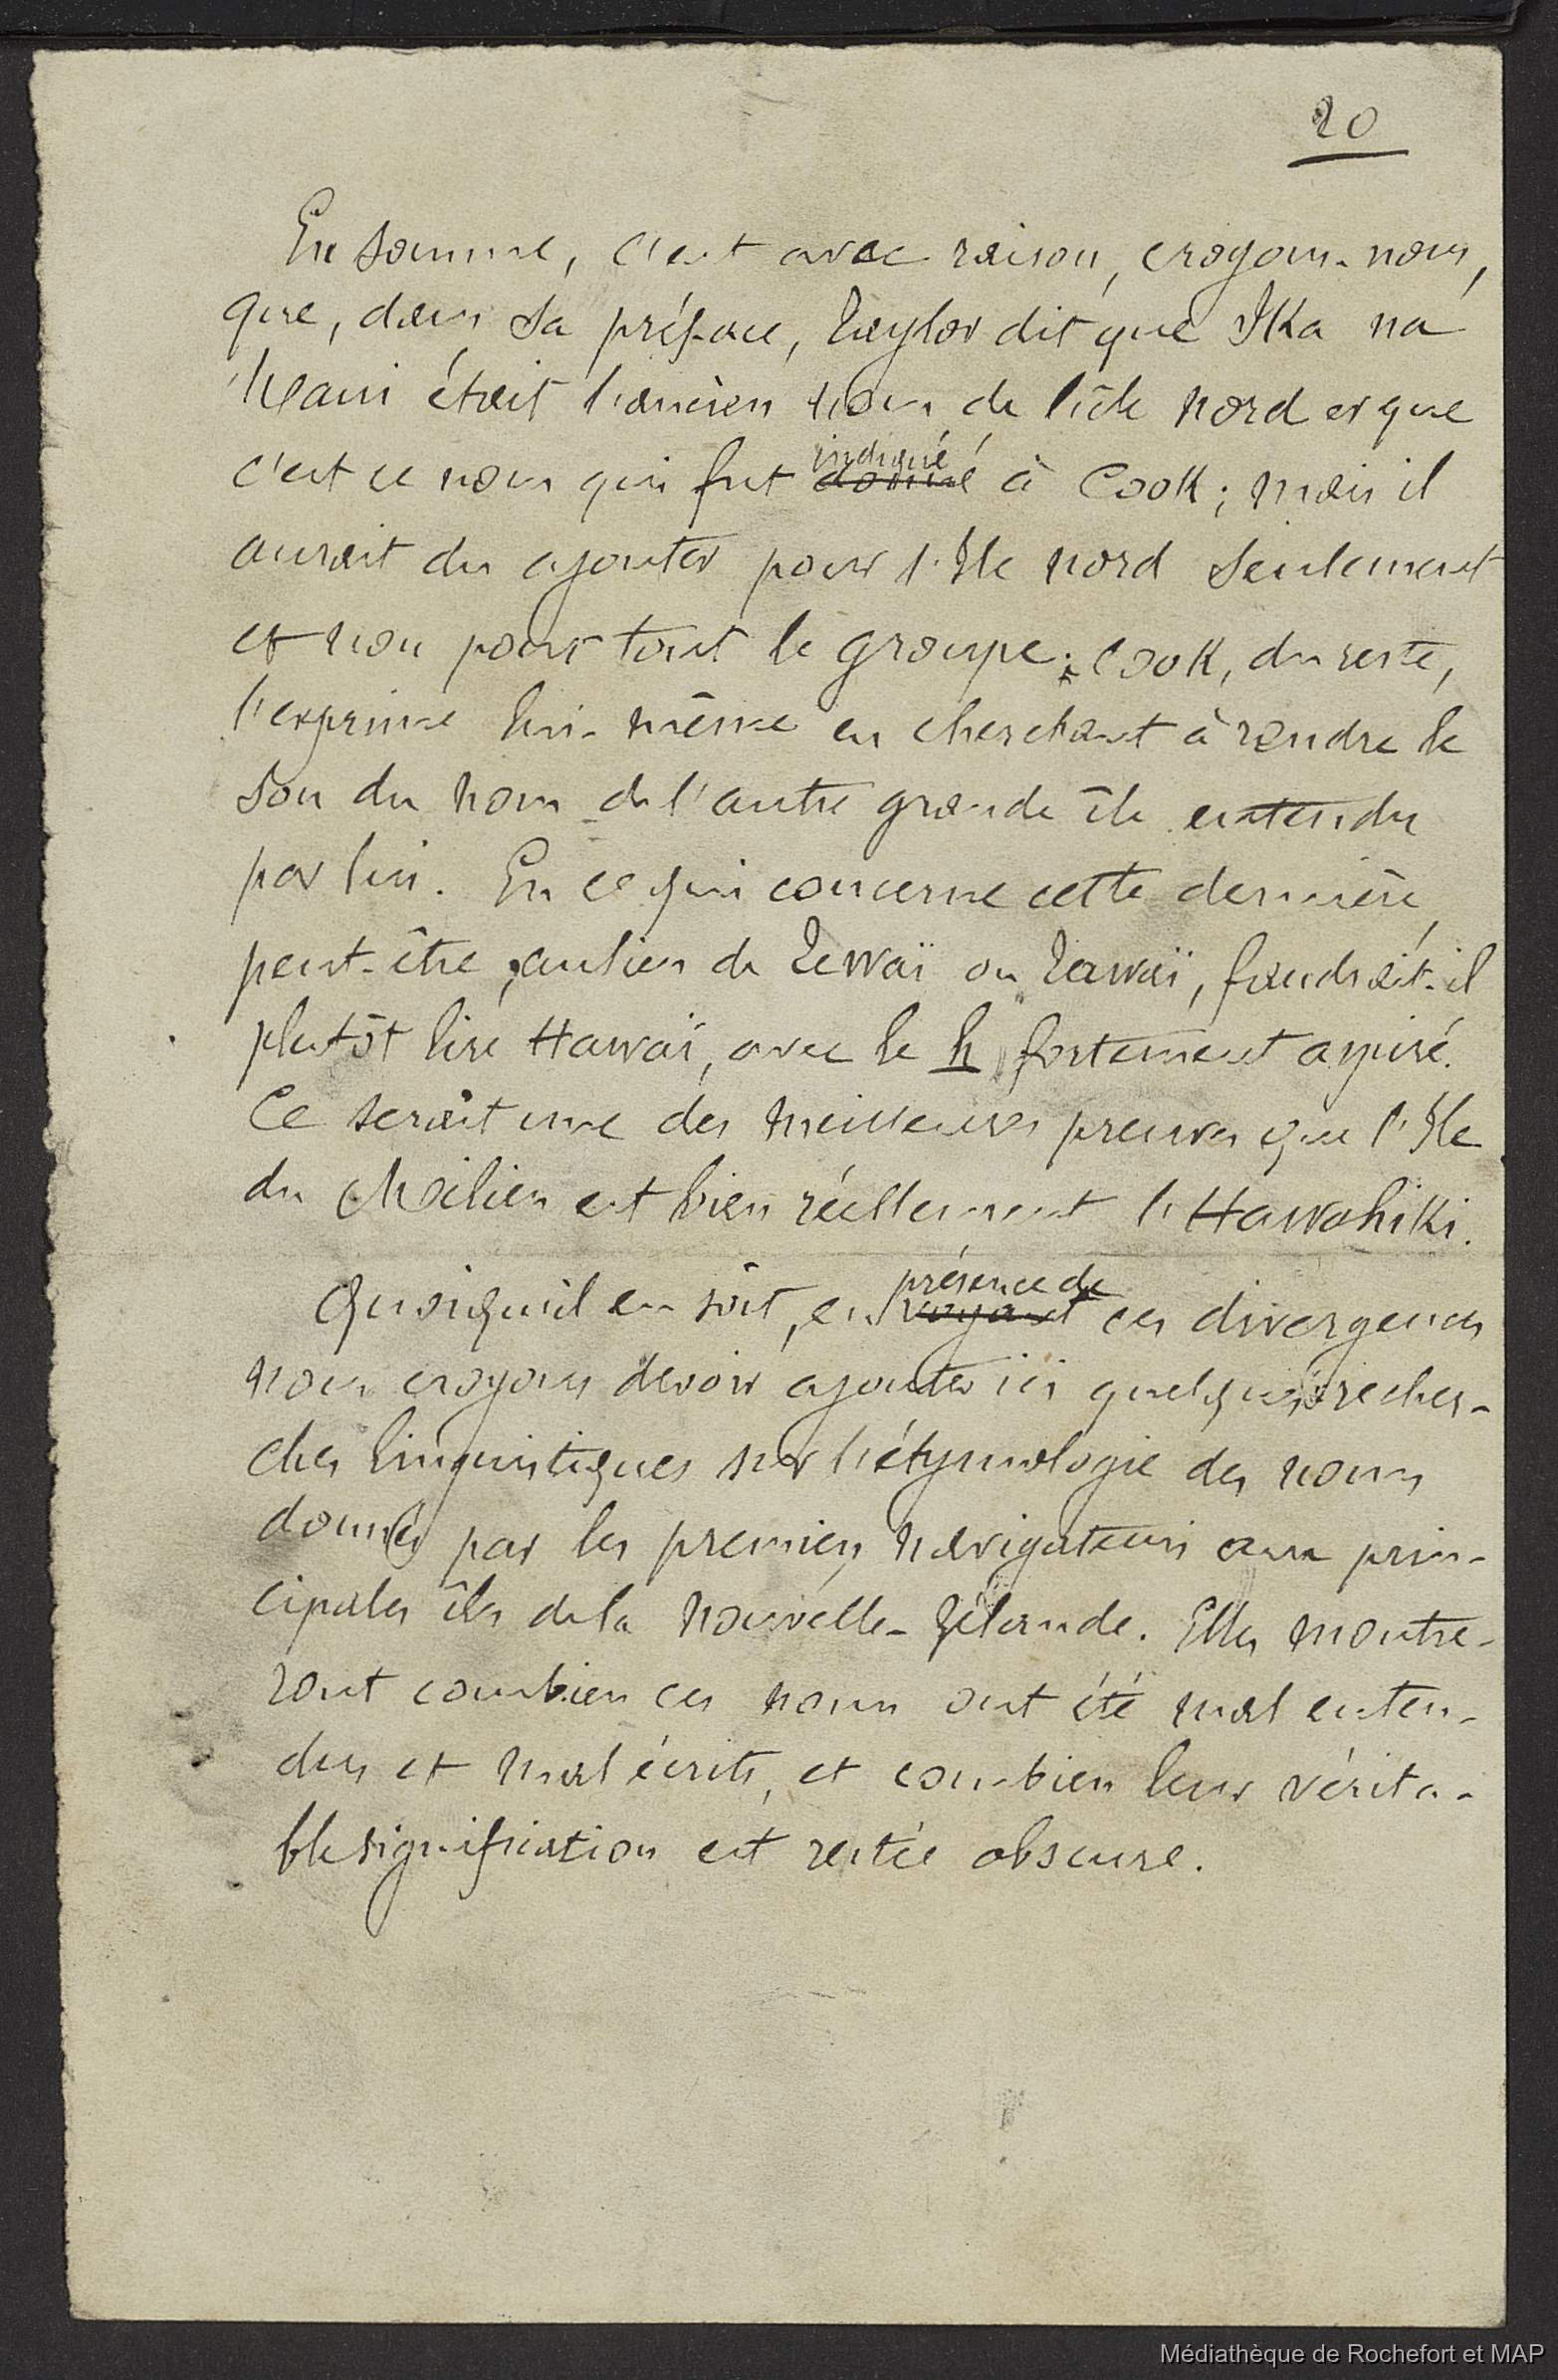 20
En somme, c'est avec raison, croyons-nous,
que, dans sa préface, Taylor dit que Ika na
Maui était l'ancien nom de l'île nord et que
c'est ce nom qui fut donné indiqué à Cook ; mais il
aurait du ajouter pour l'Ile nord seulement
et non pour tout le groupe ; Cook, du reste,
l'exprime lui-même en cherchant à rendre le
son du nom de l'autre grande île entendu
par lui. En ce qui concerne cette dernière,
peut-être, au lieu de Tewaï ou Tawaï, faudrait-il
plutôt lire Hawaï, avec le h fortement aspiré.
Ce serait une des meilleures preuves que l'Ile
du Milieu est bien réellement l'Hawahiki.
Quoiqu'il en soit, en voyant présence de ces divergences
nous croyons devoir ajouter ici quelques recher-
ches linguistiques sur l'étymologie des noms
donnés par les premiers navigateurs aux prin-
cipales îles de la Nouvelle-Zélande. Elles montre-
ront combien ces noms ont été mal enten-
dus et mal écrits, et combien leur vérita-
ble signification est restée obscure.
Médiathèque de Rochefort et MAP